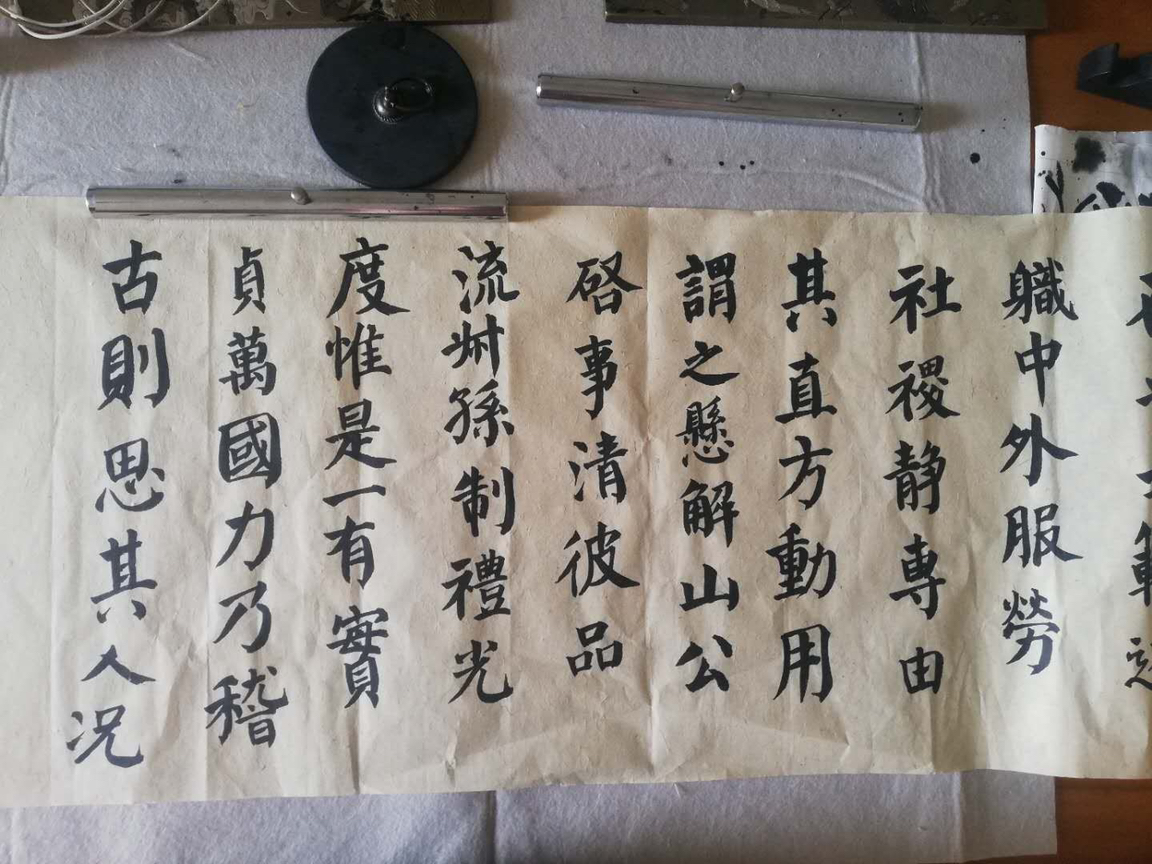 職中外服勞
社稷静専由
其直方動用
謂之懸解山公
啓事清彼品
流叔孫制禮光
度惟是一有實
貞萬國力乃稽
古則思其人况